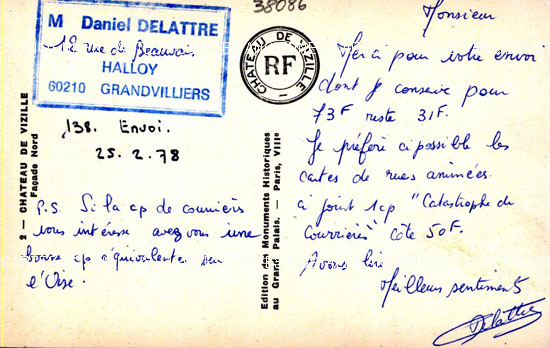 38086
M Daniel DELATTRE
12 rue de Beauvais
HALLOY
60210 GRANDVILLIERS
138. Envoi.
25. 2. 78
P.S. Si la cp de courrières
vous intéresse avez vous une
bonne cp équivalente sur
l'Oise.
2 - CHATEAU DE VIZILLE
Façade Nord
CHATEAU DE VIZILLE
RF
Edition des Monuments Historiques
au Grand Palais. - Paris, VIIIe
Monsieur
Merci pour votre envoi
dont je conserve pour
73F reste 31F.
Je préfère si possible les
cartes de rues animées.
ci joint 1 cp "Catastrophe de
Courrières" côte 50F.
A vous lire
Meilleurs sentiments
Delattre